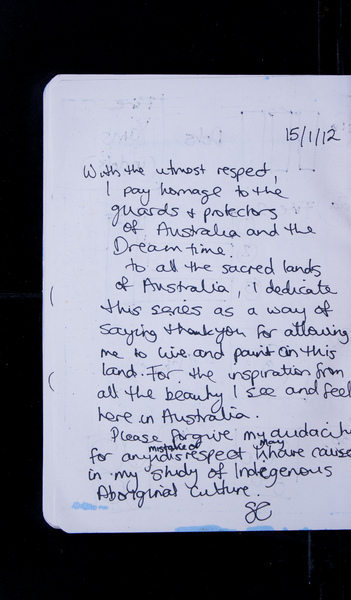 15/1/12
With the utmost respect,
I pay homage to the
guards & protectors
of Australia and the
Dreamtime.
to all the sacred lands
of Australia, I dedicate
this series as a way of
saying thankyou for allowing
me to live and paint on this
land. For the inspiration from
all the beauty I see and feel
here in Australia.
Please forgive my audacity
for any mistakes or disrespect I may have cause
in my study of Indegenous
Aboriginal Culture.
SC